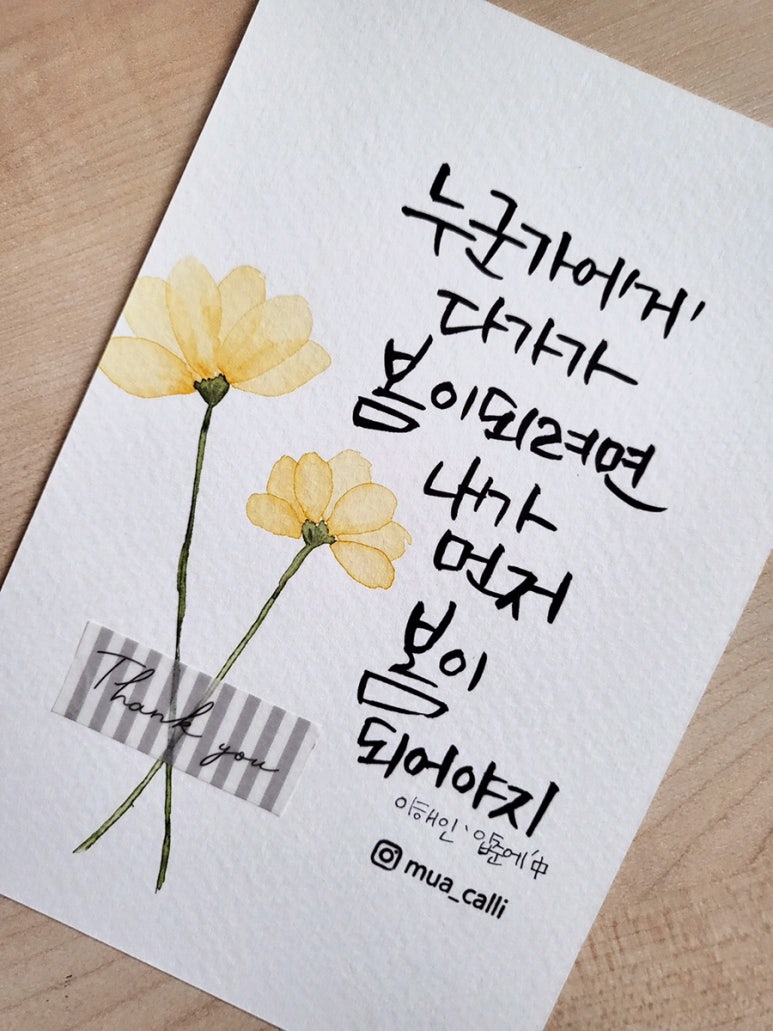 누군가에게
다가가
봄이되려면
내가
먼저
봄이
되어야지
이해인 '입춘에' 中
mua_calli
Thank you